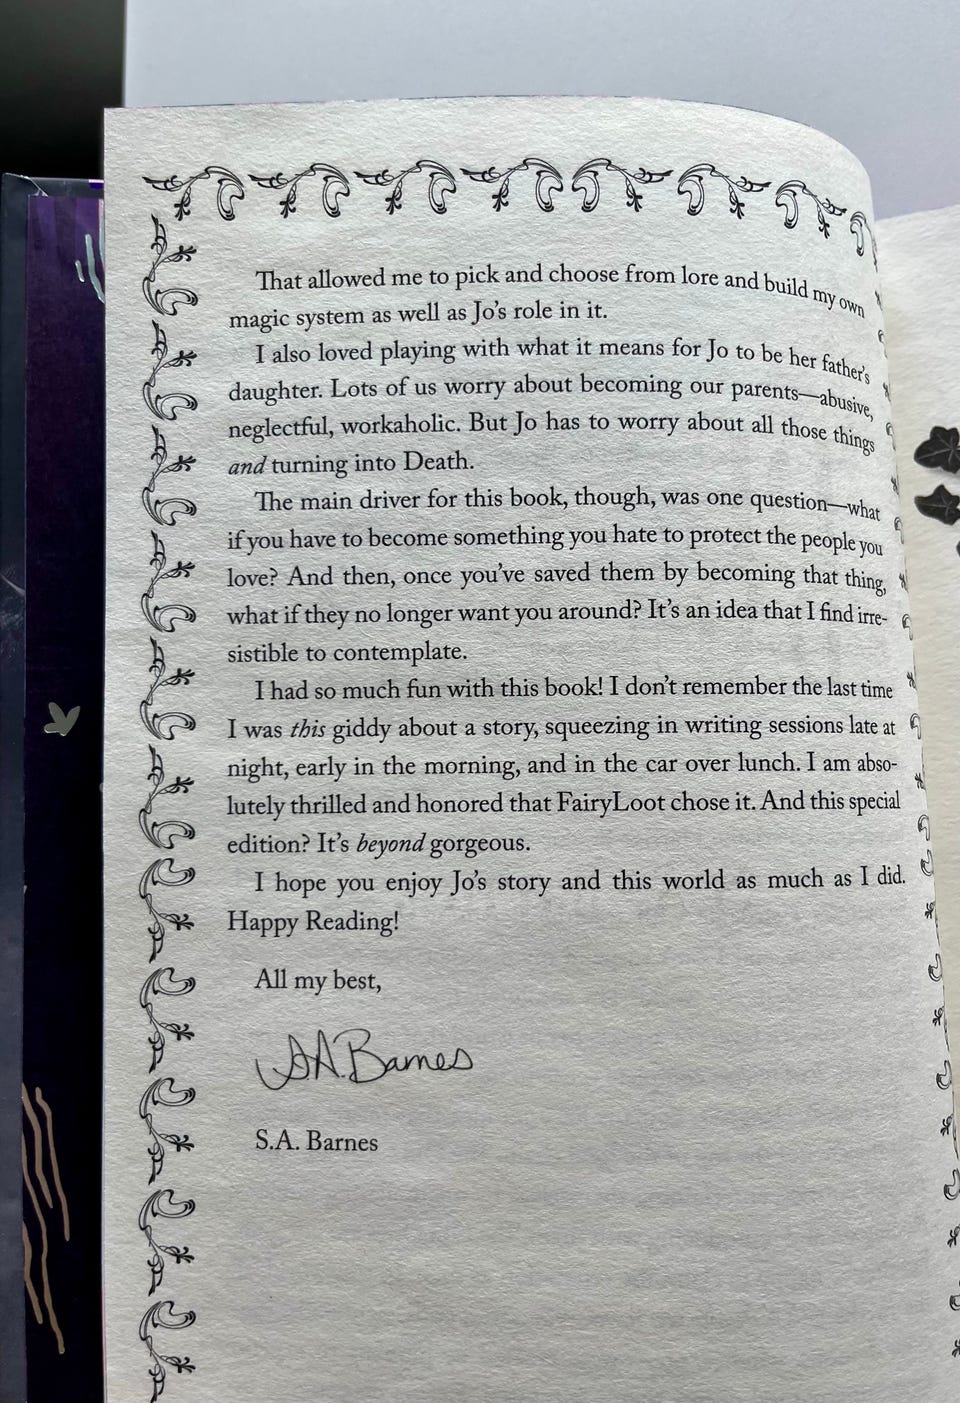 That allowed me to pick and choose from lore and build my own
magic system as well as Jo's role in it.
I also loved playing with what it means for Jo to be her father's
daughter. Lots of us worry about becoming our parents—abusive,
neglectful, workaholic. But Jo has to worry about all those things
and turning into Death.
The main driver for this book, though, was one question—what
if you have to become something you hate to protect the people you
love? And then, once you've saved them by becoming that thing,
what if they no longer want you around? It's an idea that I find irre-
sistible to contemplate.
I had so much fun with this book! I don't remember the last time
I was this giddy about a story, squeezing in writing sessions late at
night, early in the morning, and in the car over lunch. I am abso-
lutely thrilled and honored that FairyLoot chose it. And this special
edition? It's beyond gorgeous.
I hope you enjoy Jo's story and this world as much as I did.
Happy Reading!
All my best,
S.A. Barnes
S.A. Barnes